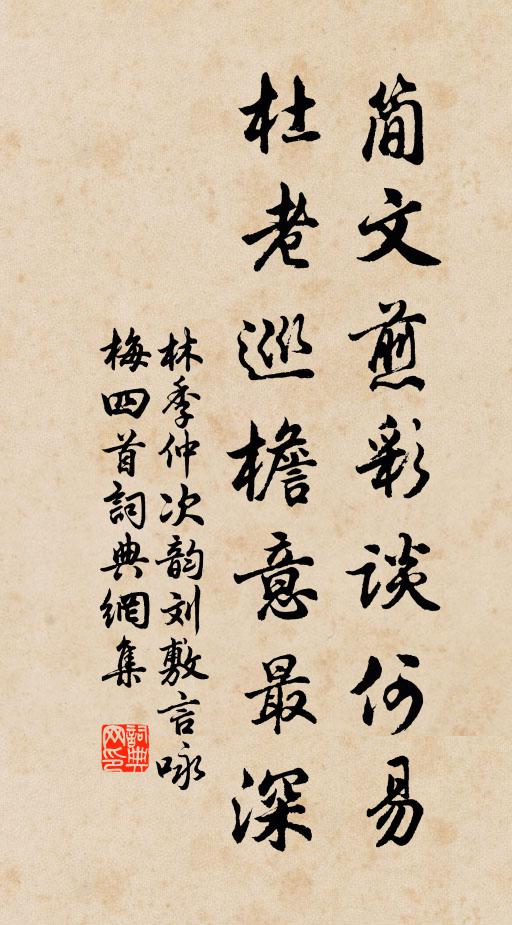 简文煎彩谈何易
杜老巡檐意最深
林季仲次韵刘敷言咏
梅四首詞典網集
詞典网印